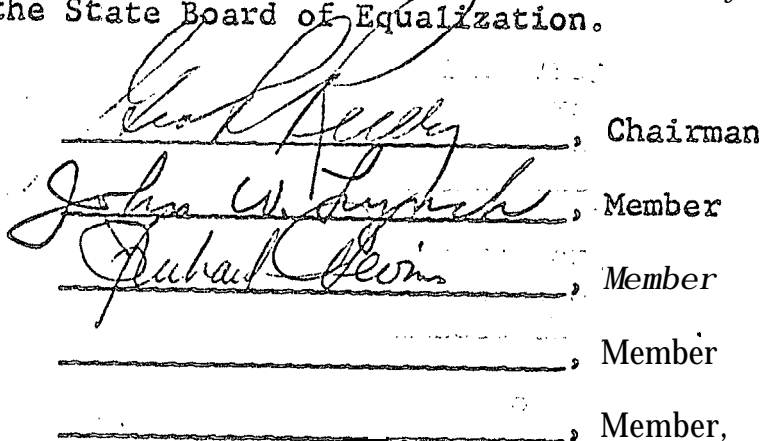 the State Board of Equalization.
Geo R Reilly, Chairman
John W. Lynch, Member
Richard Nevins, Member
, Member
, Member,